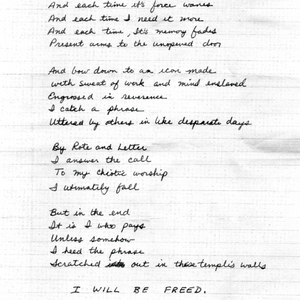 And each time it's force wanes
And each time I need it more
And each time, It's memory fades
Present arms to the unopened door
And bow down to an icon made
with sweat of work and mind enslaved
Engrossed in reverence
I catch a phrase
Uttered by others in like desparate days
By Rote and Letter
I answer the call
To my worship
I ultimately fall
But in the end
It is I who pays
Unless somehow
I heed the phrase
Scratched out in these templis walls
I WILL BE FREED.